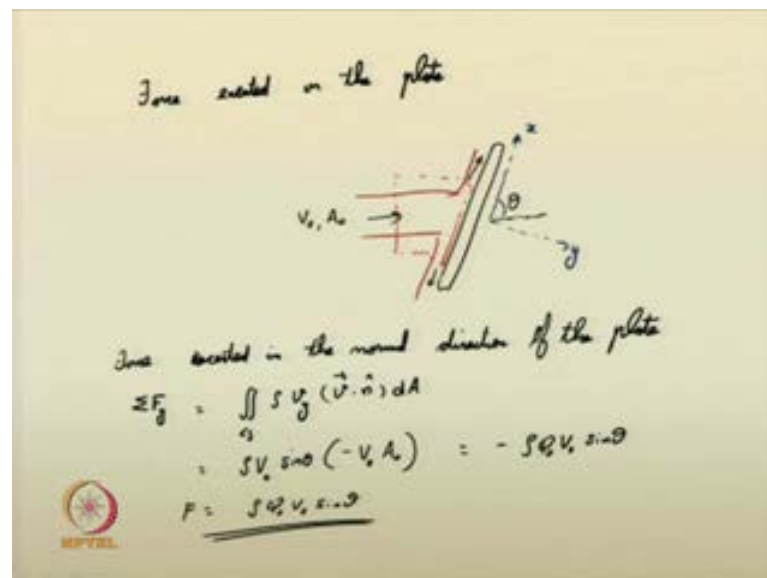 Force exerted on the plate
x
V₀, A₀ →
θ
y
Force exerted in the normal direction of the plate
ΣF_y = ∬ ρ v_y (v⃗ · n̂) dA
cs
= ρV₀ sinθ (-V₀ A₀) = - ρQ₀ V₀ sinθ
F = ρ Q₀ V₀ sinθ
NPTEL